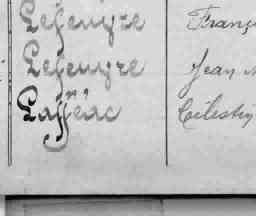 Lefeuvre Franç
Lefeuvre Jean
Laffeac Célestin